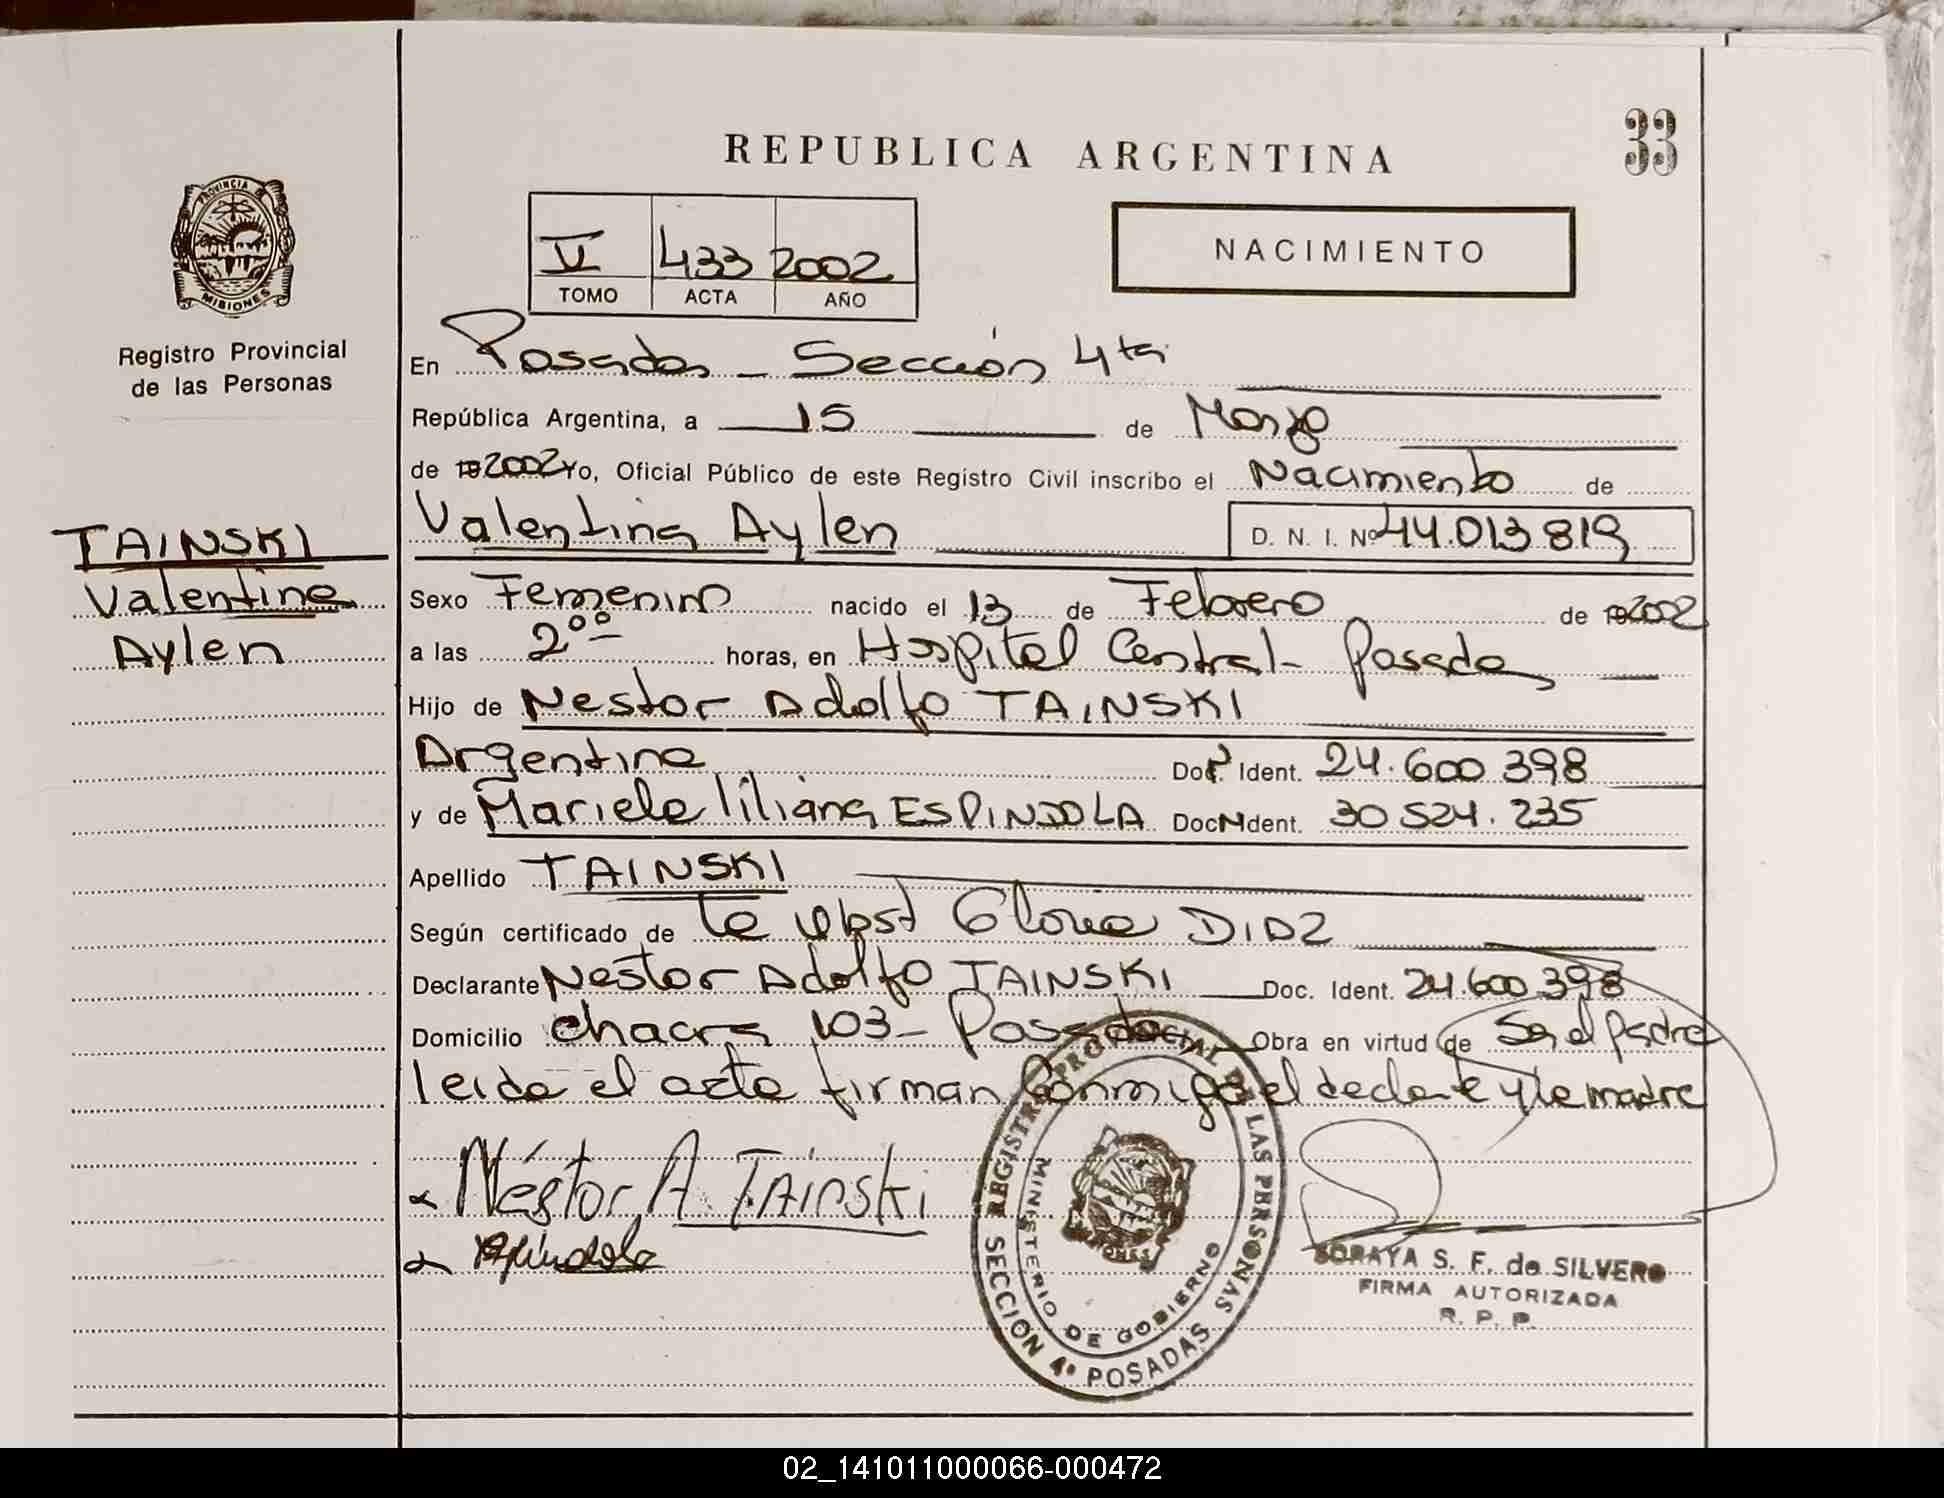 REPUBLICA ARGENTINA
33
PROVINCIA DE
MISIONES
Registro Provincial
de las Personas
V 433 2002
TOMO ACTA AÑO
NACIMIENTO
En Posadas - Sección 4ta
República Argentina, a 15 de Marzo
de 192002 Yo, Oficial Público de este Registro Civil inscribo el Nacimiento de
Valentina Aylen D. N. I. Nº 44.013 819
TAINSKI
Valentina
Aylen
Sexo Femenino nacido el 13 de Febrero de 192002
a las 2⁰⁰ horas, en Hospital Central - Posadas
Hijo de Nestor Adolfo TAINSKI
Argentina Doc. Ident. 24.600 398
y de Mariela liliana ESPINDOLA Doc. Ident. 30 524.235
Apellido TAINSKI
Según certificado de Te Obst Gloria DIAZ
Declarante Nestor Adolfo TAINSKI Doc. Ident. 24.600 398
Domicilio chacra 103 - Posadas Obra en virtud de Ser el padre
leida el acta firman Conmigo el declarante y la madre
Néstor A. TAINSKI
REGISTRO PROVINCIAL DE LAS PERSONAS
MINISTERIO DE GOBIERNO
MISIONES
SECCION 4ª POSADAS
SORAYA S. F. de SILVERO
FIRMA AUTORIZADA
R. P. P.
02_141011000066-000472